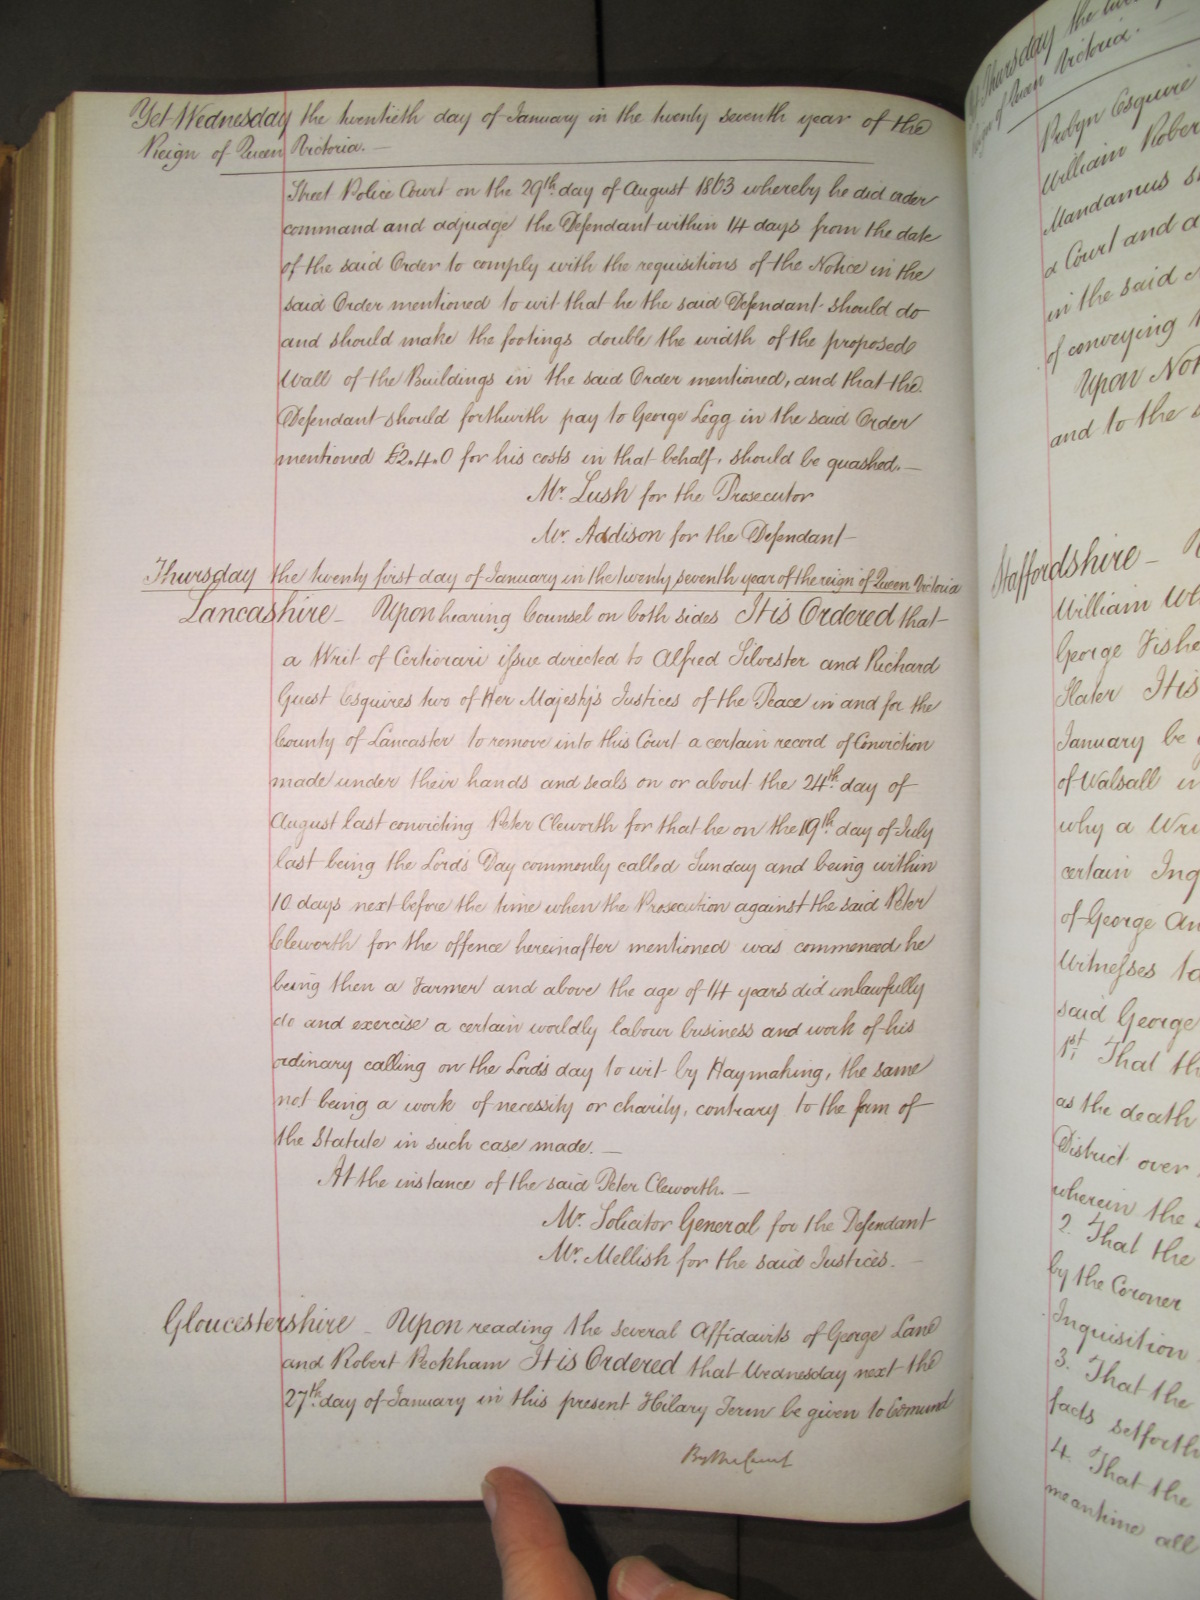 Yet Wednesday the twentieth day of January in the twenty seventh year of the
Reign of Queen Victoria. —
Street Police Court on the 29th day of August 1863 whereby he did order
command and adjudge the Defendant within 14 days from the date
of the said Order to comply with the requisitions of the Notice in the
said Order mentioned to wit that he the said Defendant should do
and should make the footings double the width of the proposed
Wall of the Buildings in the said Order mentioned, and that the
Defendant should forthwith pay to George Legg in the said Order
mentioned £2.4.0 for his costs in that behalf, should be quashed. —
Mr. Lush for the Prosecutor
Mr. Addison for the Defendant
Thursday the twenty first day of January in the twenty seventh year of the reign of Queen Victoria
Lancashire — Upon hearing Counsel on both sides It is Ordered that
a Writ of Certiorari issue directed to Alfred Silvester and Richard
Guest Esquires two of Her Majesty's Justices of the Peace in and for the
County of Lancaster to remove into this Court a certain record of Conviction
made under their hands and seals on or about the 24th day of
August last convicting Peter Cleworth for that he on the 19th day of July
last being the Lord's Day commonly called Sunday and being within
10 days next before the time when the Prosecution against the said Peter
Cleworth for the offence hereinafter mentioned was commenced he
being then a Farmer and above the age of 14 years did unlawfully
do and exercise a certain worldly labour business and work of his
ordinary calling on the Lord's day to wit by Haymaking, the same
not being a work of necessity or charity, contrary to the form of
the Statute in such case made. —
At the instance of the said Peter Cleworth. —
Mr. Solicitor General for the Defendant
Mr. Mellish for the said Justices. —
Gloucestershire — Upon reading the several Affidavits of George Lane
and Robert Peckham It is Ordered that Wednesday next the
27th day of January in this present Hilary Term be given to Edmund
By the Court
Thursday the
Reign of Queen Victoria.
Probyn Esquire
William Rober
Mandamus
a Court and a
in the said
of conveying
Upon
and to the
Staffordshire —
William
George Fishe
Slater It is
January be
of Walsall in
why a Wri
certain Inq
of George An
Witnesses to
said George
1st. That th
as the death
District over
wherein the
2. That the
by the Coroner
Inquisition
3. That the
facts setforth
4. That the
meantime all